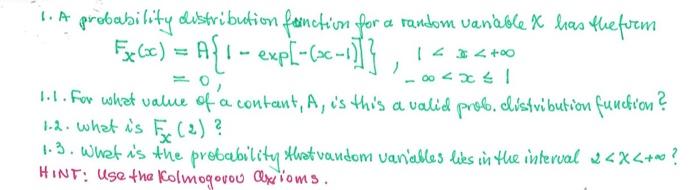 1. A probability distribution function for a random variable X has the form
Fx(x) = A{1 - exp[-(x-1)]}, 1 < x < +∞
= 0, -∞ < x ≤ 1
1.1. For what value of a contant, A, is this a valid prob. distribution function?
1.2. what is Fx(2)?
1.3. What is the probability that random variables lies in the interval 2<X<+∞?
HINT: Use the Kolmogorov Axioms.